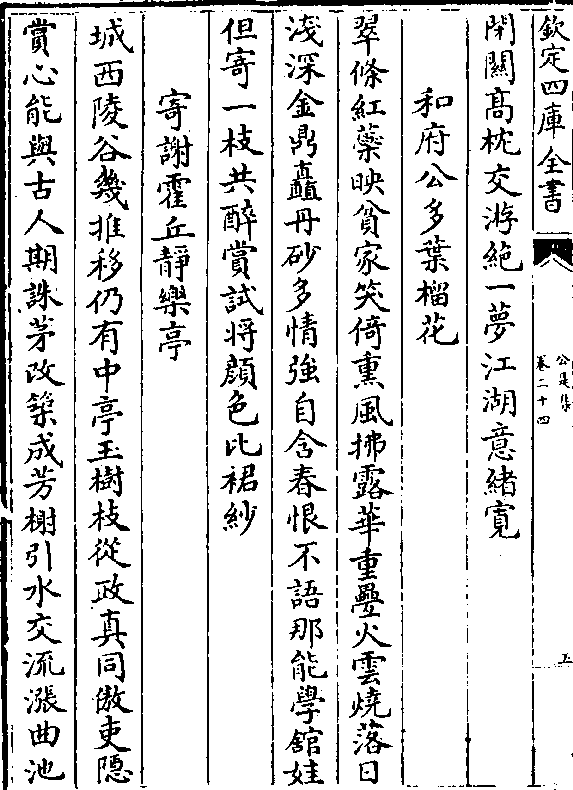 欽定四庫全書
公是集
卷二十四
五
閉關髙枕交游絶一夢江湖意緒寛
和府公多葉榴花
翠條紅蘂映貧家笑倚熏風拂露華重疊火雲燒落日
淺深金鼎矗丹砂多情強自含春恨不語那能學舘娃
但寄一枝共醉賞試将顔色比裙紗
寄謝霍丘靜樂亭
城西陵谷幾推移仍有中亭玉樹枝從政真同傲吏隠
賞心能與古人期誅茅改築成芳榭引水交流漲曲池